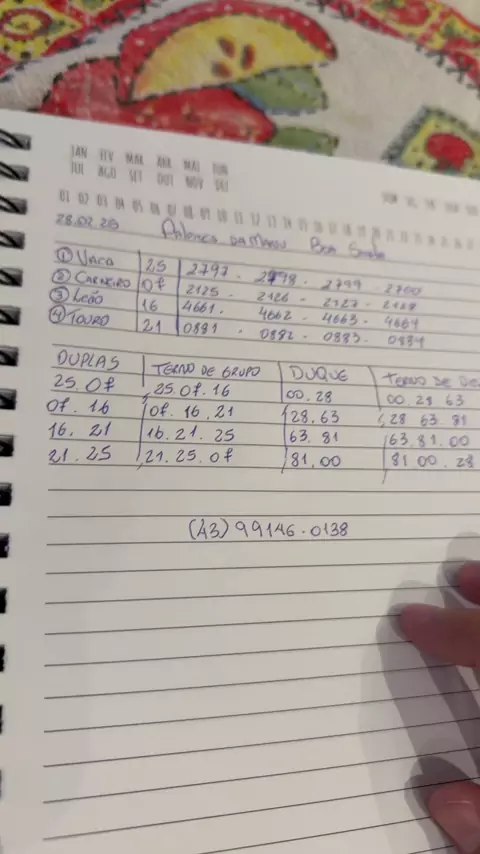 JAN FEV MAR ABR MAI JUN
JUL AGO SET OUT NOV DEZ
01 02 03 04 05 06 07 08 09 10 11 12 13 14 15 16 17 18 19 20 21 22 23 24 25 26
28.02.25 Palpites da Manu Boa Sorte
① VACA 25 2797 - 2798 - 2799 - 2700
② CARNEIRO 07 2125 - 2126 - 2127 - 2128
③ LEÃO 16 4661 - 4662 - 4663 - 4664
④ TOURO 21 0881 - 0882 - 0883 - 0884
DUPLAS TERNO DE GRUPO DUQUE TERNO DE DE
25.07 25.07.16 00.28 00.28 63
07.16 07.16.21 28.63 28 63.81
16.21 16.21.25 63.81 63.81.00
21.25 21.25.07 81.00 81 00.28
(43) 99146-0138